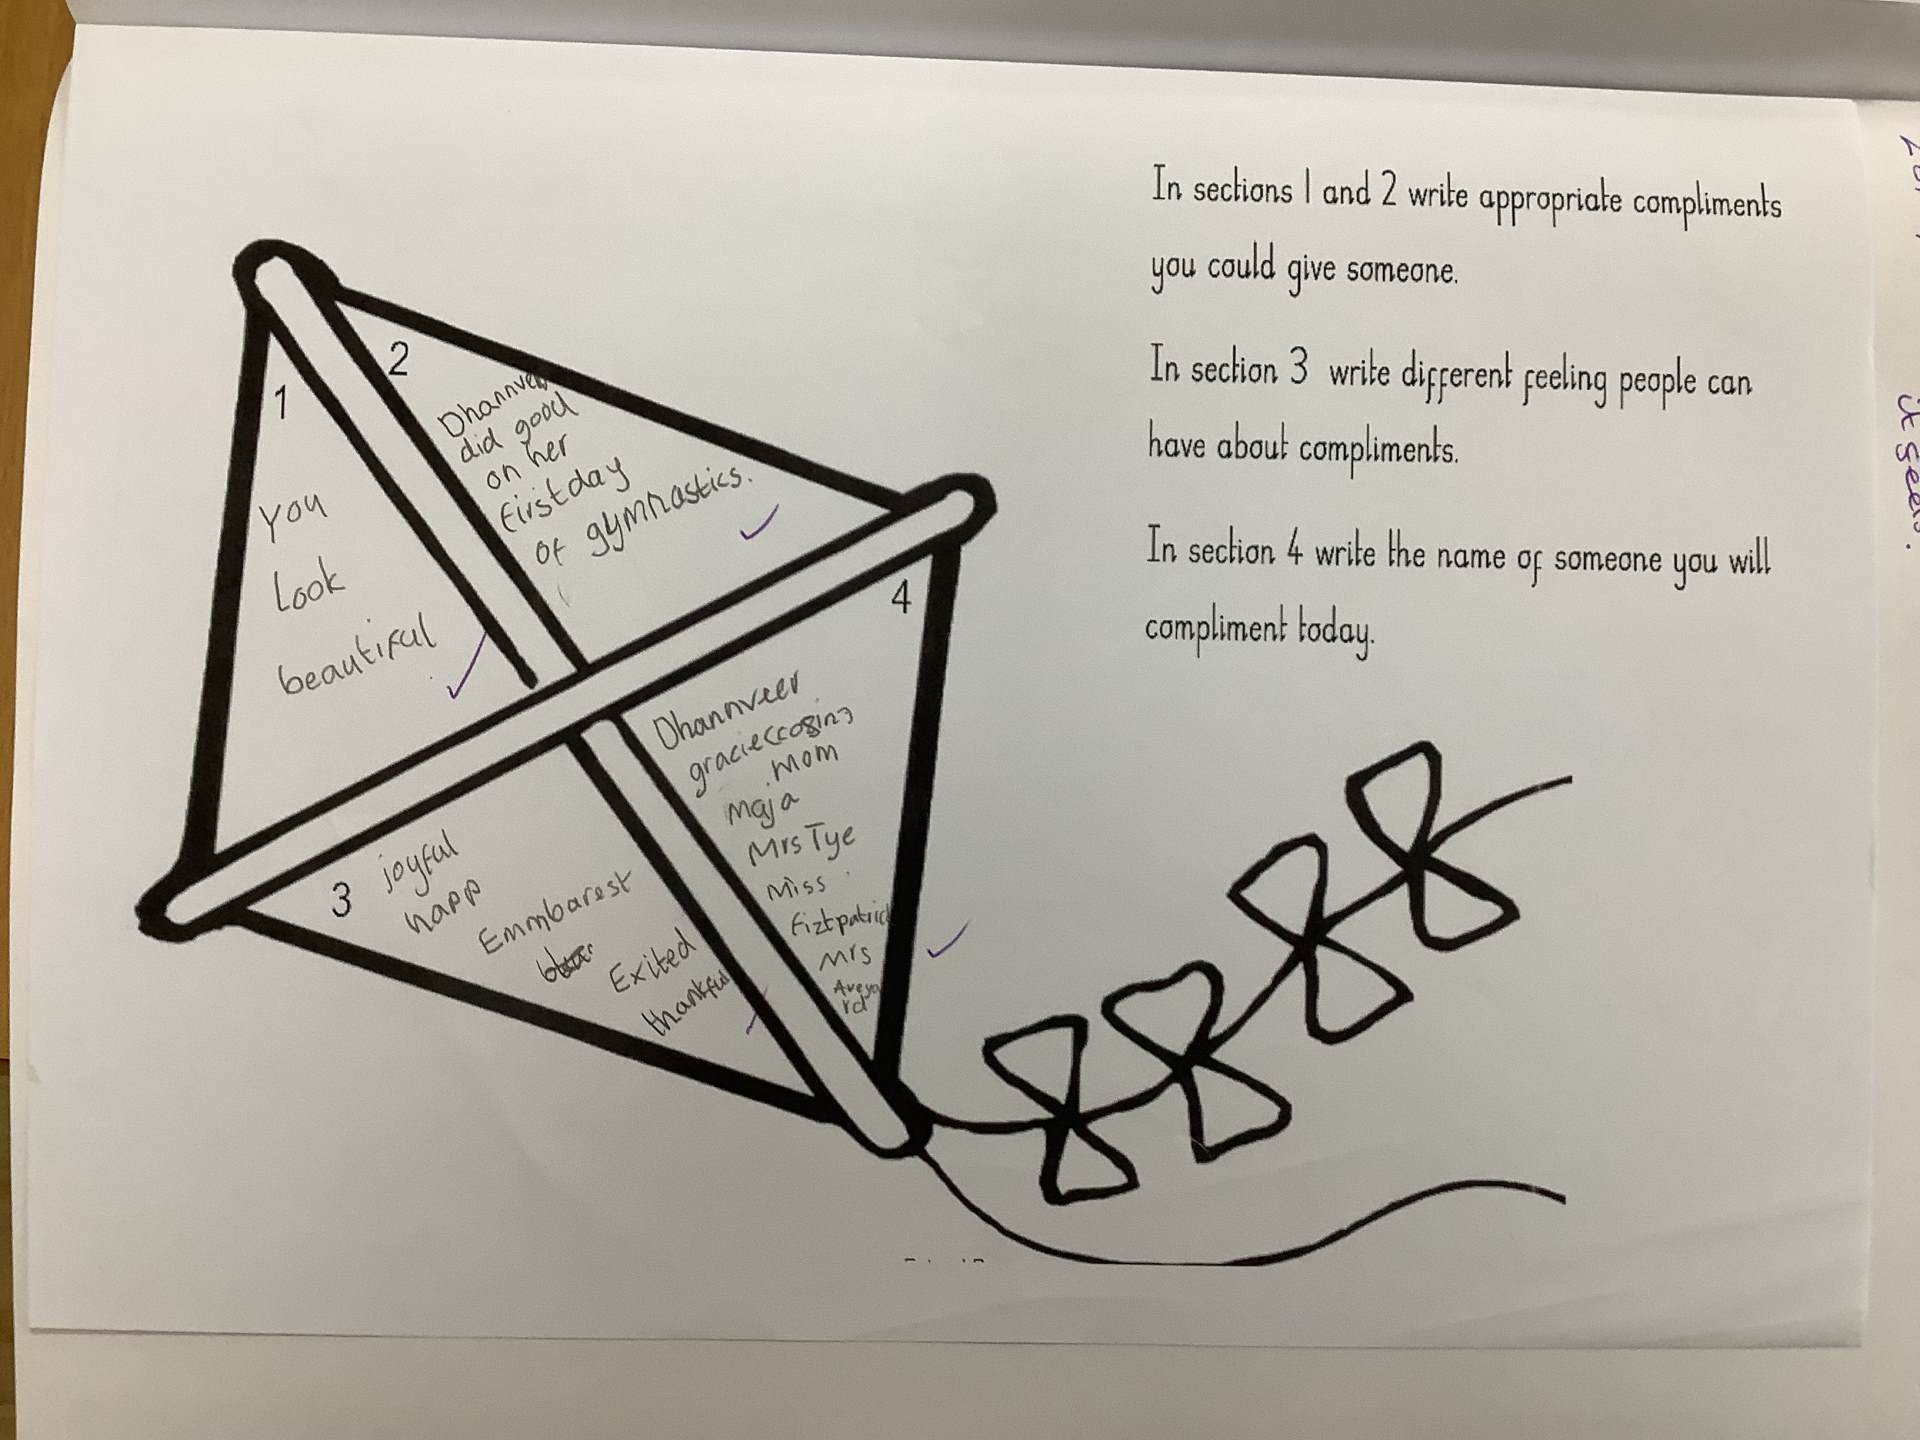 In sections 1 and 2 write appropriate compliments
you could give someone.
In section 3 write different feeling people can
have about compliments.
In section 4 write the name of someone you will
compliment today.
1
You
Look
beautiful
2
Dhannveer
did good
on her
first day
of gymnastics.
3
joyful
happ
Emmbarest
Exited
thankful
4
Dhannveer
gracie(cosin)
Mom
Maja
Mrs Tye
Miss
Fiztpatrick
Mrs